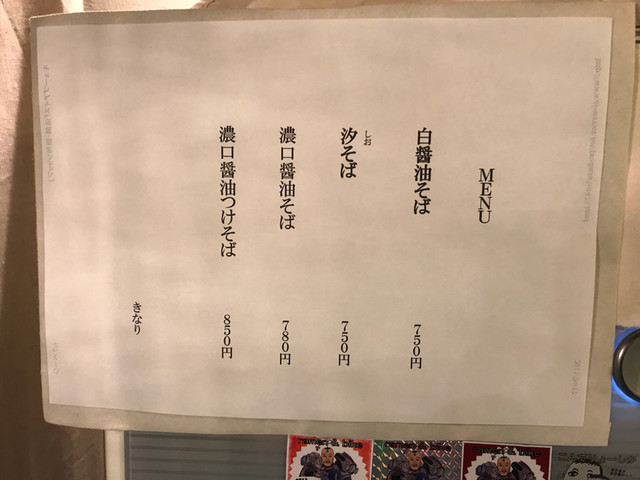 MENU
白醤油そば 750円
しお
汐そば 750円
濃口醤油そば 780円
濃口醤油つけそば 850円
きなり